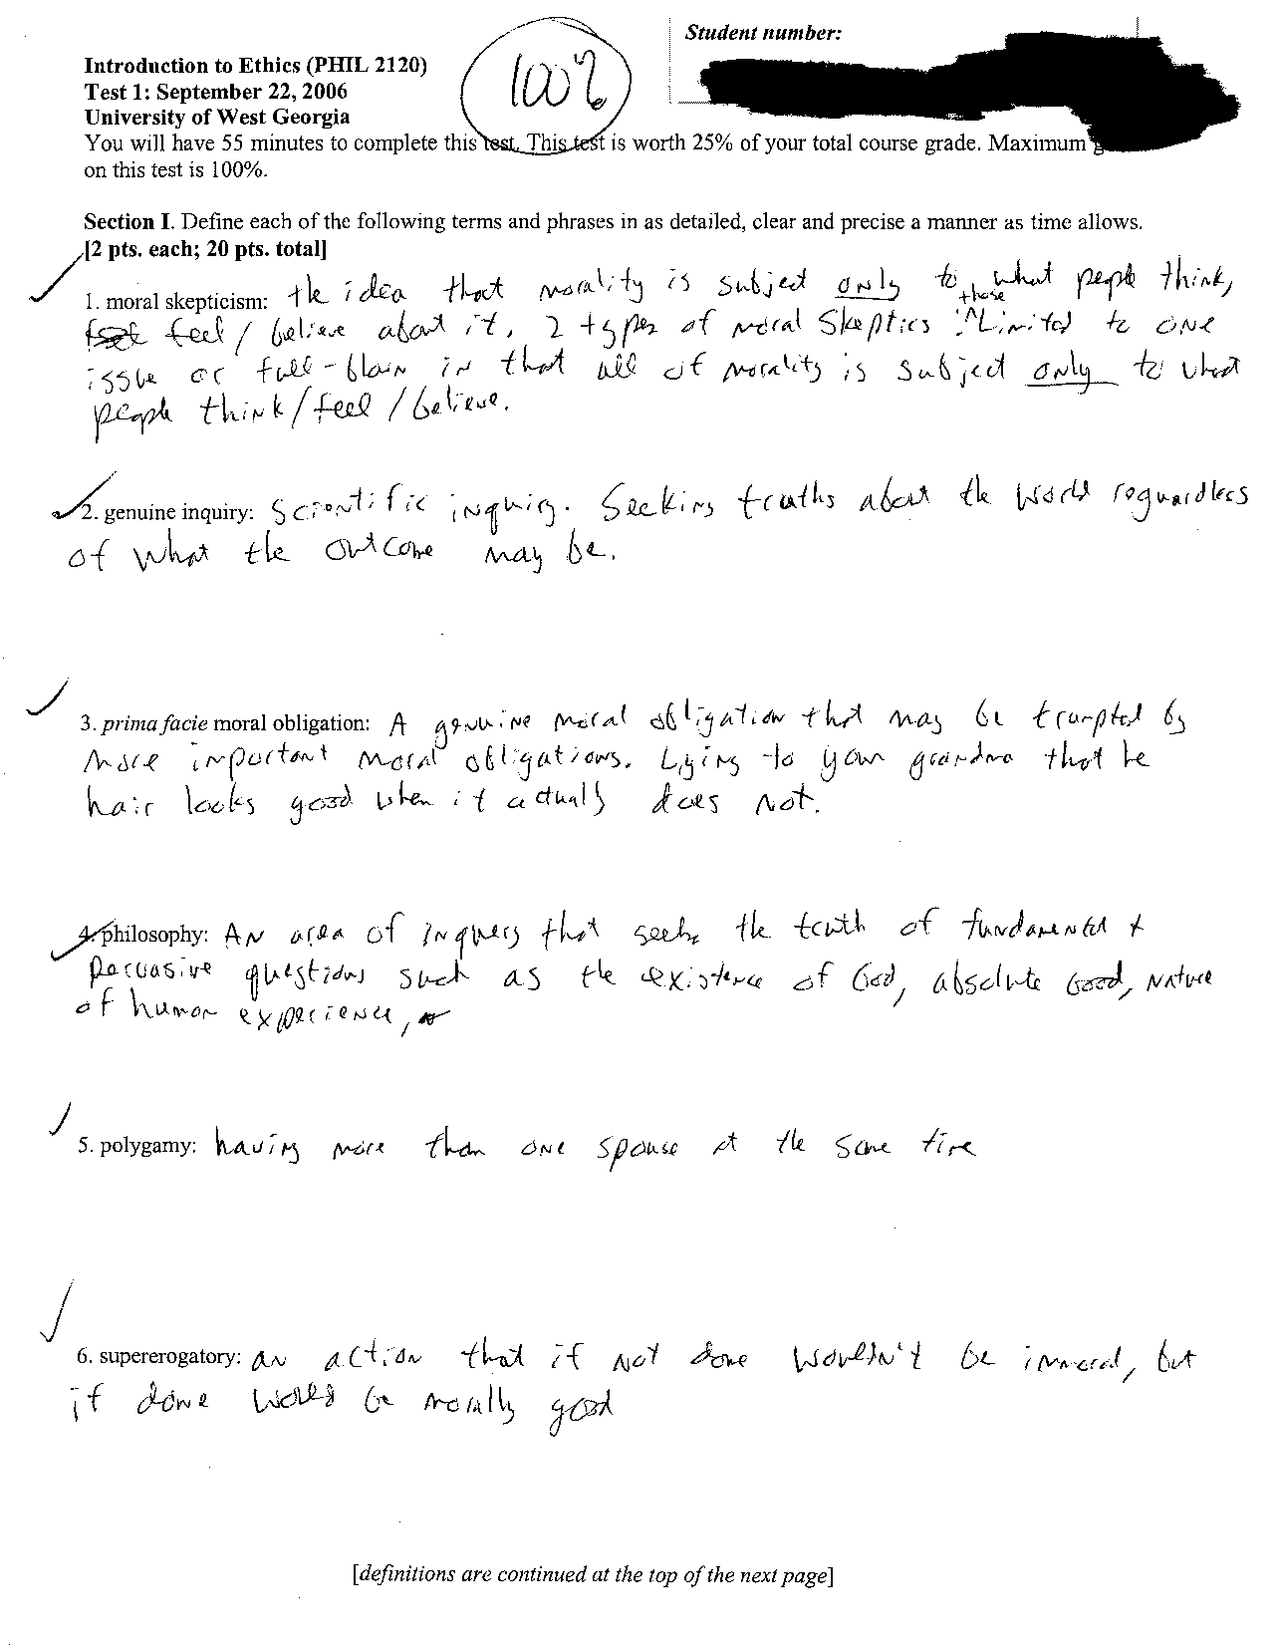 Student number:
100%
Introduction to Ethics (PHIL 2120)
Test 1: September 22, 2006
University of West Georgia
You will have 55 minutes to complete this test. This test is worth 25% of your total course grade. Maximum
on this test is 100%.
Section I. Define each of the following terms and phrases in as detailed, clear and precise a manner as time allows.
[2 pts. each; 20 pts. total]
1. moral skepticism: the idea that morality is subject only to what people think,
feel / believe about it. 2 types of moral skeptics: those Limited to one
issue or full-blown in that all of morality is subject only to what
people think/feel/believe.
2. genuine inquiry: Scientific inquiry. Seeking truths about the world reguardless
of what the outcome may be.
3. prima facie moral obligation: A genuine moral obligation that may be trumpted by
more important moral obligations. Lying to your grandma that he
hair looks good when it actually does not.
4. philosophy: An area of inquery that seeks the truth of fundamental +
persuasive questions such as the existence of God, absolute Good, Nature
of human experience,
5. polygamy: having more than one spouse at the same time
6. supererogatory: an action that if not done wouldn't be immoral, but
if done would be morally good
[definitions are continued at the top of the next page]